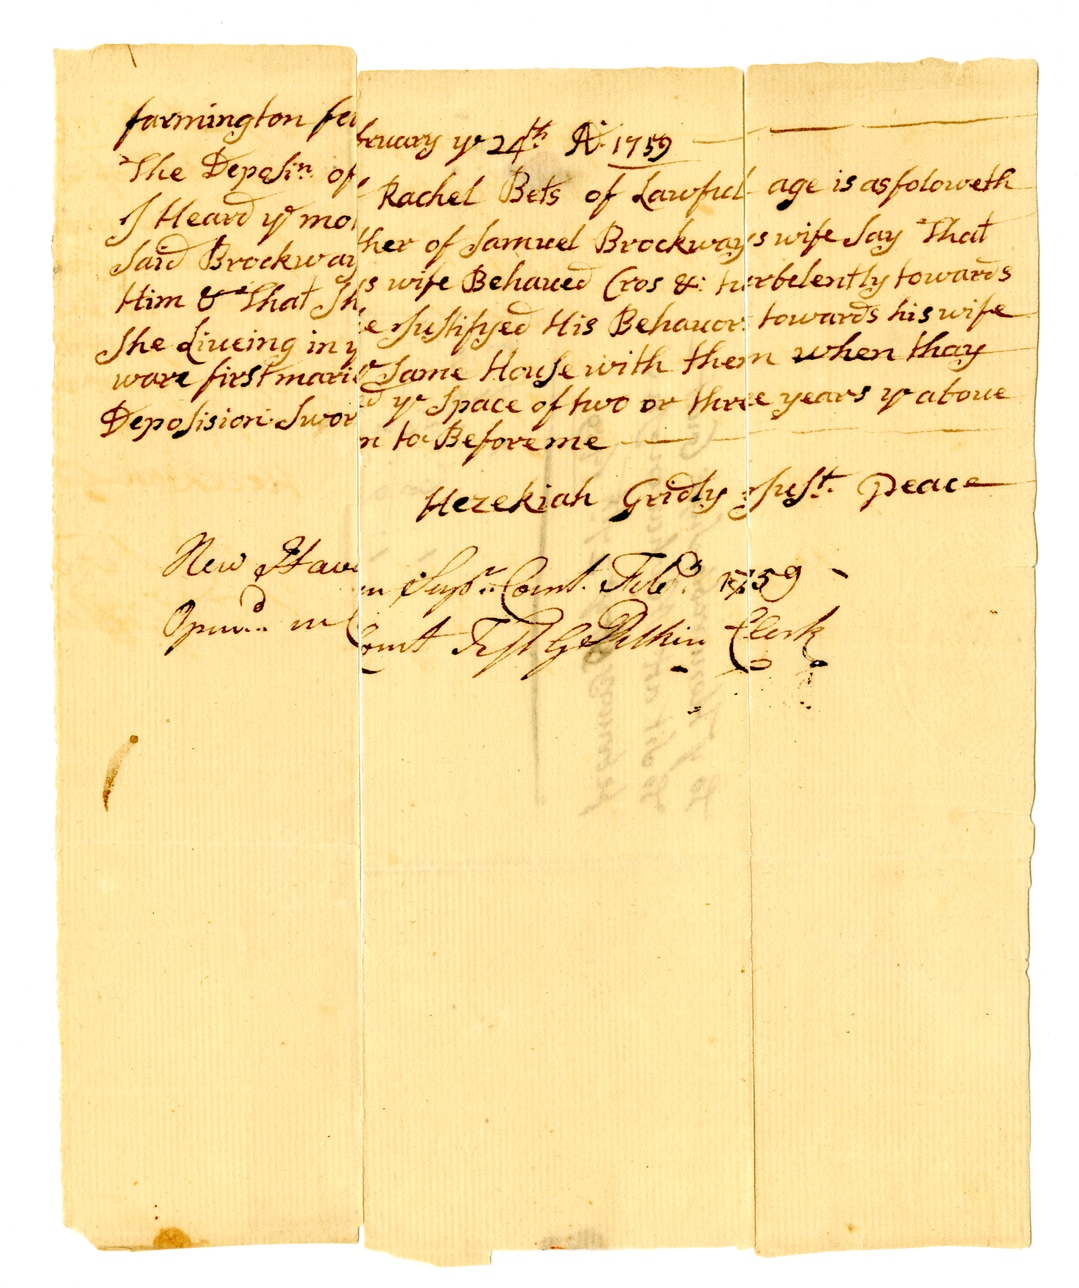 farmington february ye 24th AD 1759
The Deposn. of Rachel Bets of Lawful age is as foloweth
I Heard ye mother of Samuel Brockways wife Say That
Said Brockways wife Behaued Cros &: turbelently towards
Him & That She Justifyed His Behauor: towards his wife
She Liueing in ye Same House with them when thay
ware first maried ye Space of two or three years ye aboue
Deposision: Sworn to Before me
Hezekiah Gridly Just. peace
New Haven Supr. Court Feb. 1759
Opend. in Court Test G Pitkin Clerk